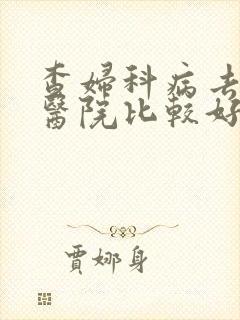 查婦科病去
醫院比較好
賈娜身